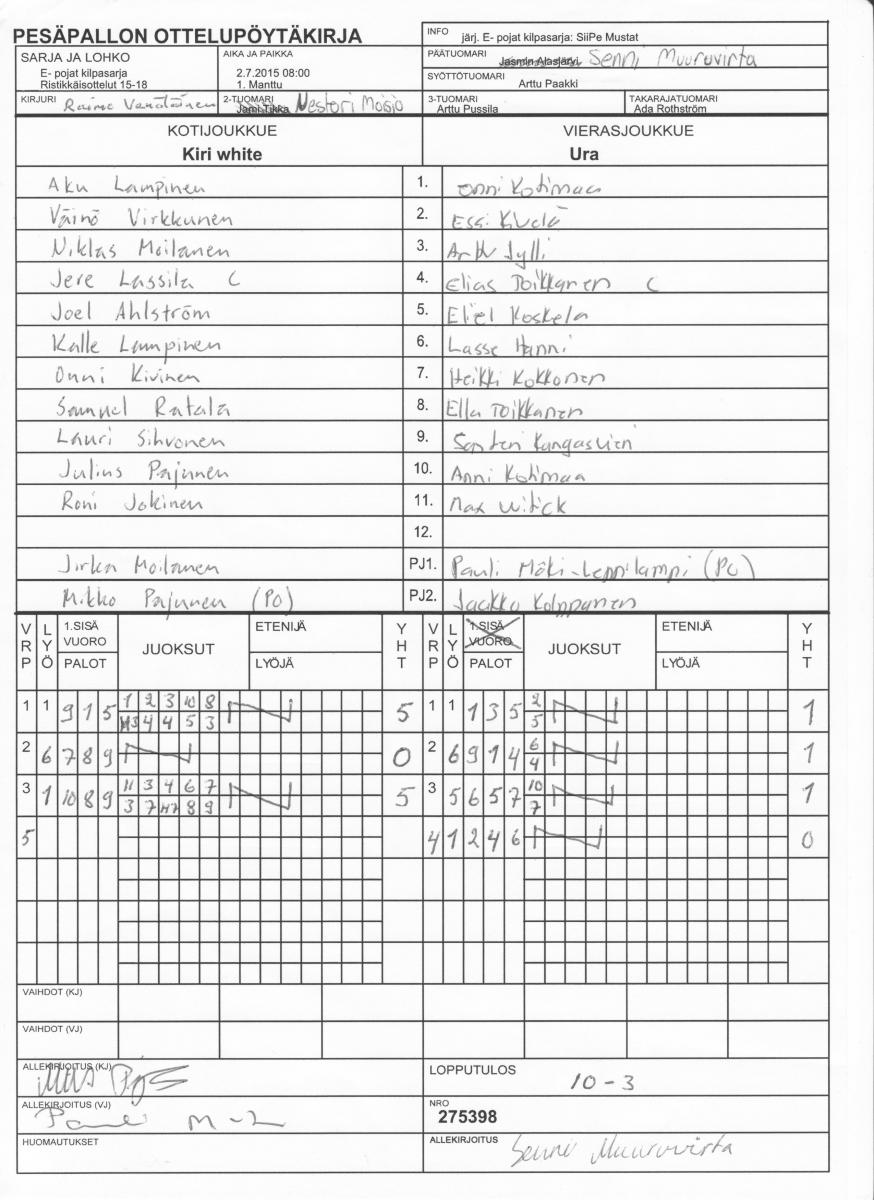 PESÄPALLON OTTELUPÖYTÄKIRJA
INFO järj. E- pojat kilpasarja: SiiPe Mustat
SARJA JA LOHKO
E- pojat kilpasarja
Ristikkäisottelut 15-18
AIKA JA PAIKKA
2.7.2015 08:00
1. Manttu
PÄÄTUOMARI Jasmin Alastarvi Senni Muurovirta
SYÖTTÖTUOMARI Arttu Paakki
KIRJURI Raimo Venäläinen
2-TUOMARI Jami Tikka Nestori Moisio
3-TUOMARI Arttu Pussila
TAKARAJATUOMARI Ada Rothström
KOTIJOUKKUE VIERASJOUKKUE
Kiri white Ura
Aku Lampinen 1. Onni Kotimaa
Väinö Virkkunen 2. Essi
Niklas Moilanen 3. Arttu Jylli
Jere Lassila C 4. Elias Toikkanen C
Joel Ahlström 5. Eliel Koskela
Kalle Lampinen 6. Lasse Hänni
Onni Kivinen 7. Heikki Kokkonen
Samuel Ratala 8. Ella Toikkanen
Lauri Sihvonen 9. Santeri
Julius Pajunen 10. Anni Kotimaa
Roni Jokinen 11. Max Witick
12.
Jirka Moilanen PJ1. Pauli Mäki-Leppilampi (PO)
Mikko Pajunen (PO) PJ2. Jaakko Kolppanen
VRP LYÖ 1.SISÄ VUORO PALOT JUOKSUT ETENIJÄ LYÖJÄ YHT VRP LYÖ 1.SISÄ VUORO PALOT JUOKSUT ETENIJÄ LYÖJÄ YHT
1 1 9 1 5 1 2 3 10 8 5 1 1 1 3 5 2 1
H3 4 4 5 3 5
2 6 7 8 9 0 2 6 9 1 4 6 1
4
3 1 10 8 9 11 3 4 6 7 5 3 5 6 5 7 10 1
3 7 H7 8 9 7
5 4 1 2 4 6 0
VAIHDOT (KJ)
VAIHDOT (VJ)
ALLEKIRJOITUS (KJ)
LOPPUTULOS 10-3
ALLEKIRJOITUS (VJ) M-L
NRO 275398
HUOMAUTUKSET
ALLEKIRJOITUS Senni Muurovirta